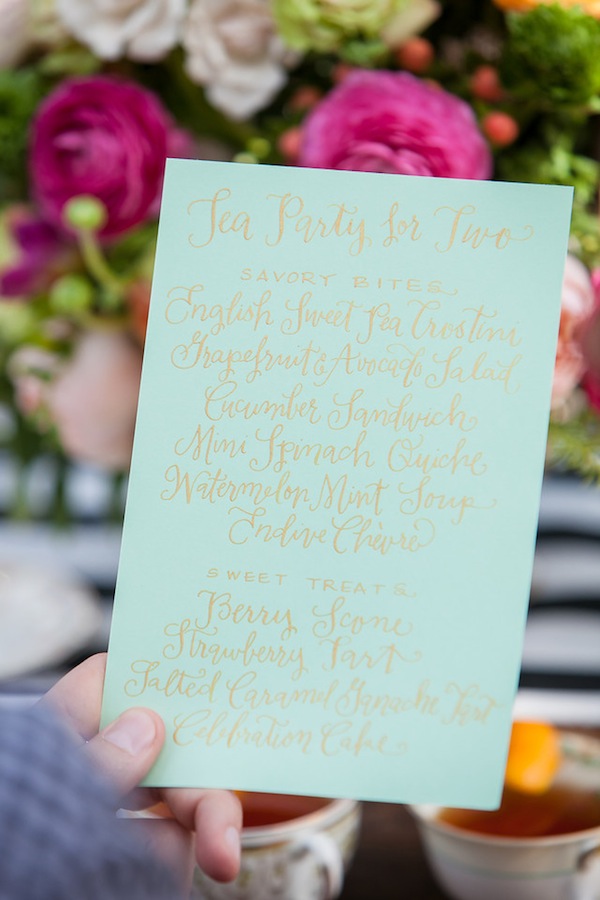 Tea Party for Two
SAVORY BITES
English Sweet Pea Crostini
Grapefruit & Avocado Salad
Cucumber Sandwich
Mini Spinach Quiche
Watermelon Mint Soup
Endive Chèvre
SWEET TREATS
Berry Scone
Strawberry Tart
Salted Caramel Ganache Tart
Celebration Cake